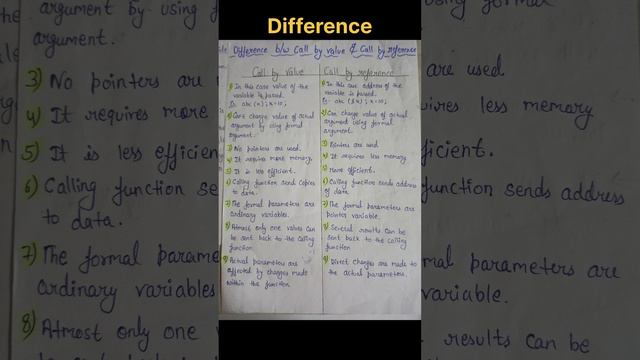 Difference
Difference b/w Call by value & Call by reference
Call by value
1) In this case value of the
variable is passed.
Ex: abc (x); x=10;
2) Can't change value of actual
argument by using formal
argument.
3) No pointers are used.
4) It requires more memory.
5) It is less efficient.
6) Calling function send copies
to data.
7) The formal parameters are
ordinary variables.
8) Atmost only one values can
be sent back to the calling
function
9) Actual parameters are
affected by changes made
within the function
Call by reference
1) In this case address of the
variable is passed.
Ex: abc (&x); x=10;
2) Can change value of actual
argument using formal
argument.
3) Pointers are used
4) It requires less memory
5) More efficient.
6) Calling function sends address
of data.
7) The formal parameters are
pointer variable.
8) Several results can be
sent back to the calling
function
9) Direct changes are made to
the actual parameters.
argument by using f
argument.
3) No pointers are
4) It requires more
5) It is less efficien
6) Calling function se
to data.
7) The formal parame
ordinary variables
8) Atmost only one
are used
ires less memory
icient.
function sends address
mal parameters are
variable.
results can be